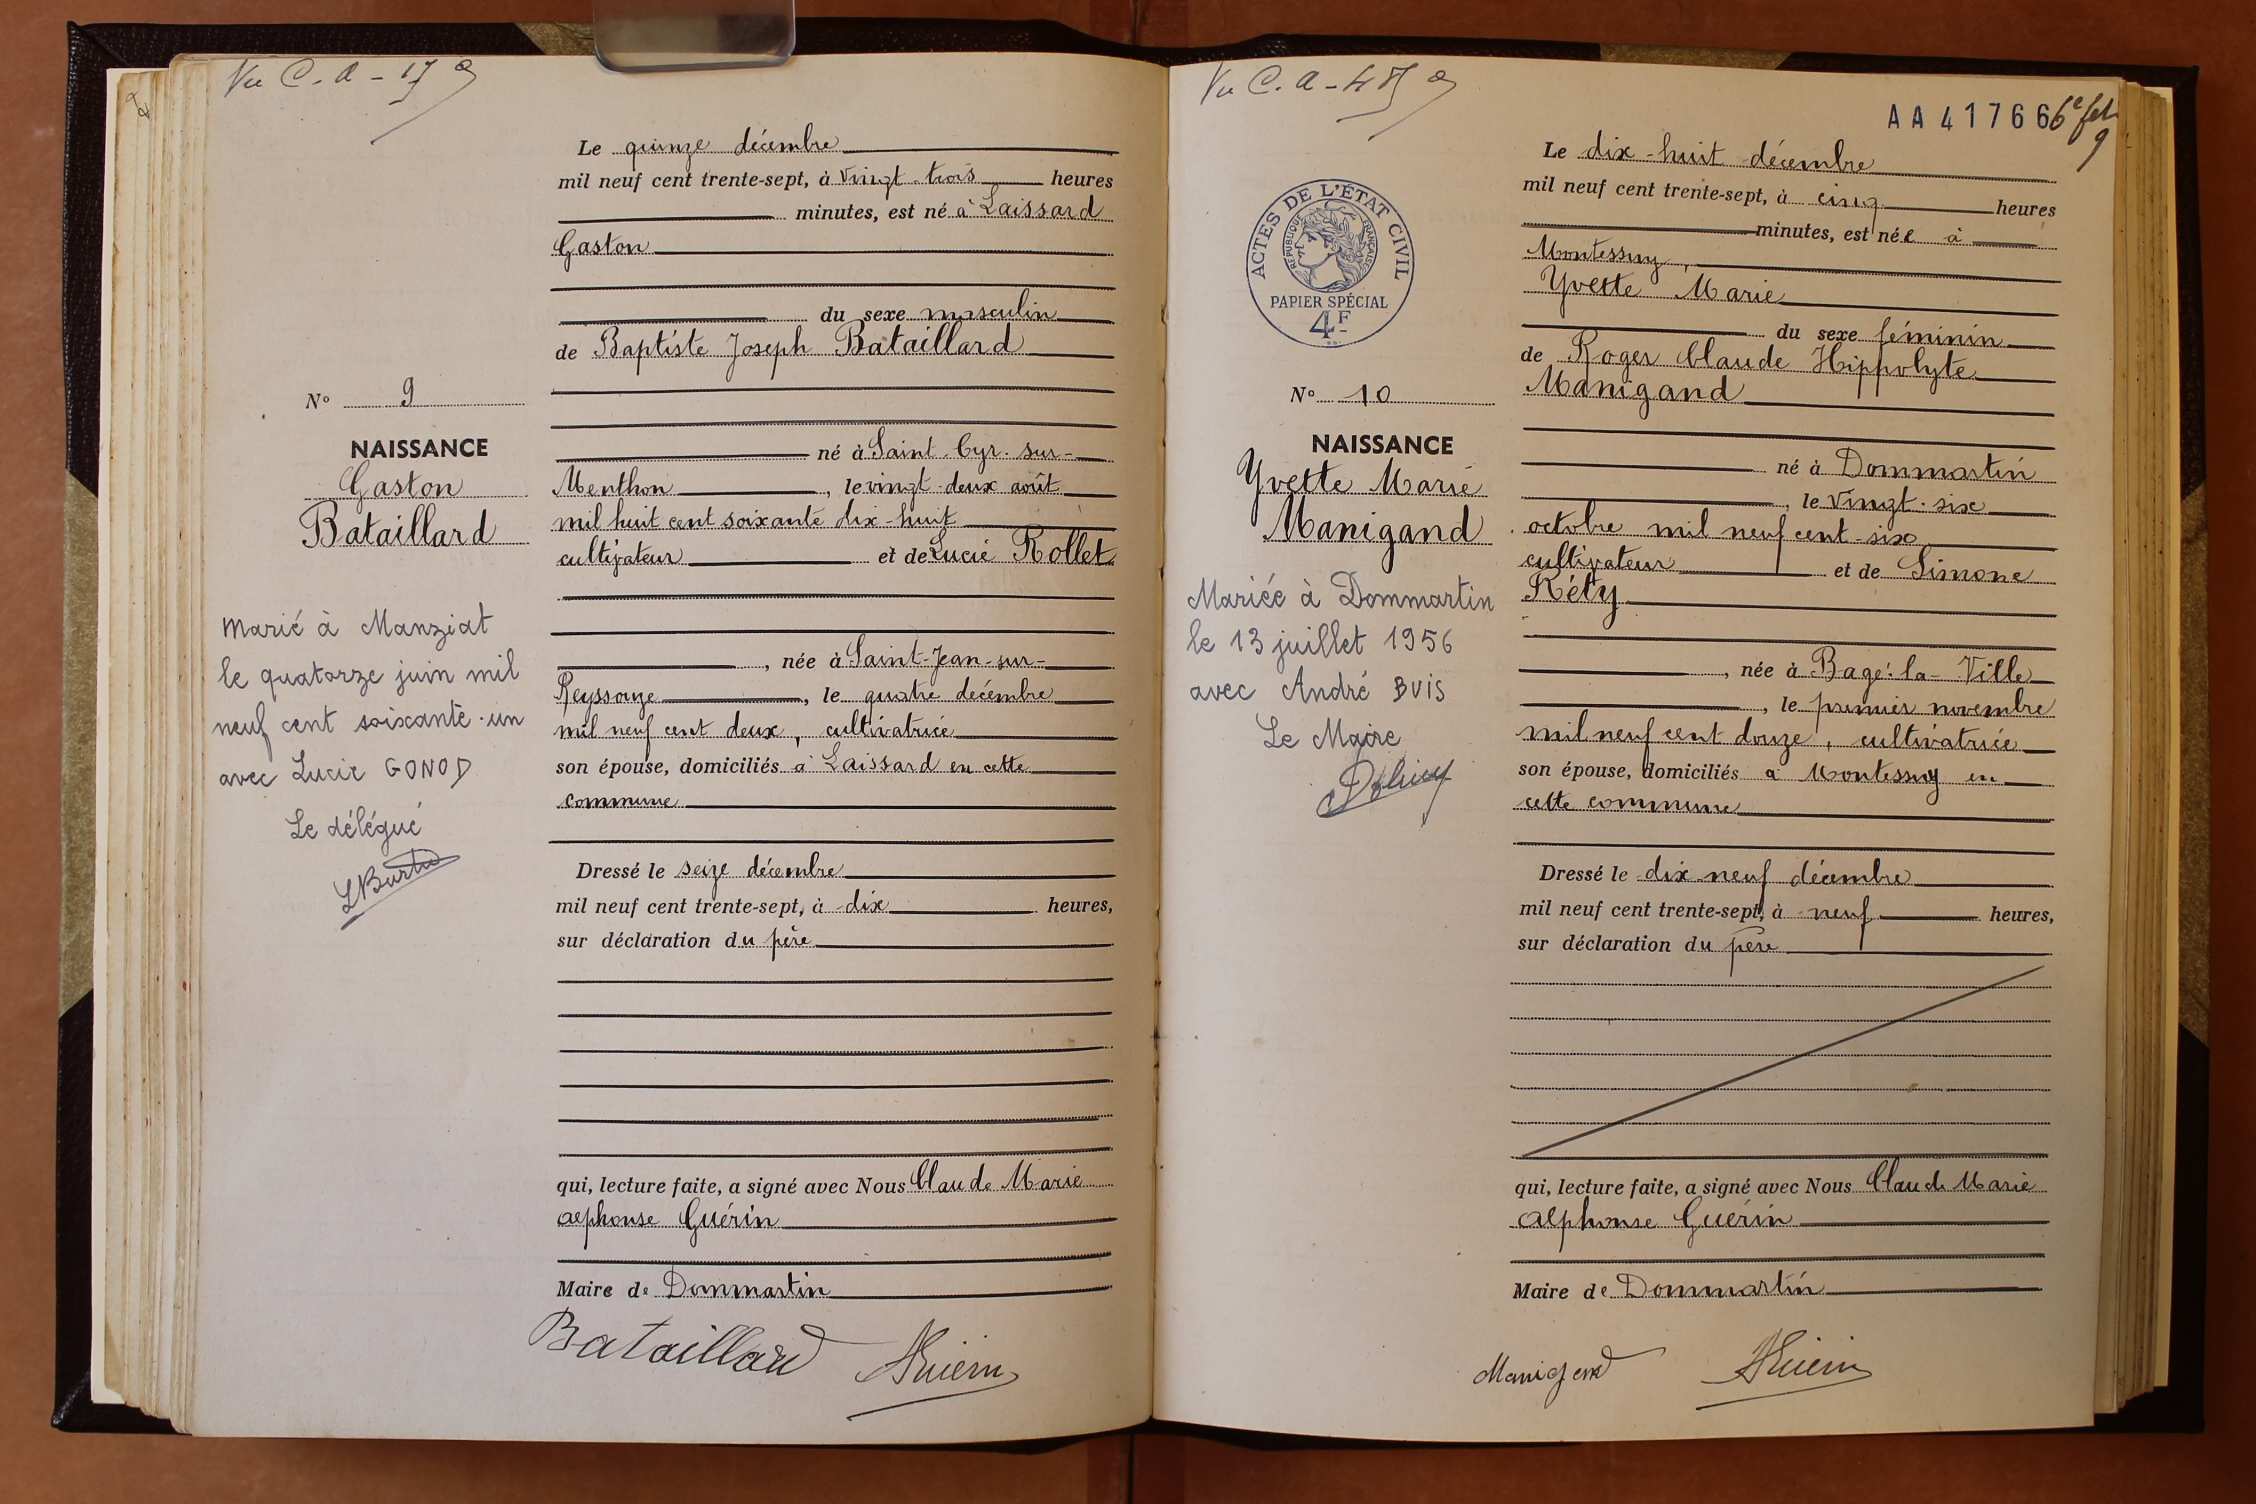 Vu C. A - 17
Le quinze décembre
mil neuf cent trente-sept, à vingt-trois heures
minutes, est né à Laissard
Gaston
du sexe masculin
de Baptiste Joseph Bataillard
N° 9
NAISSANCE
Gaston
Bataillard
né à Saint-Cyr-sur-
Menthon, le vingt-deux août
mil huit cent soixante dix-huit
cultivateur et de Lucie Rollet
Marié à Manziat
le quatorze juin mil
neuf cent soixante-un
avec Lucie GONOD
Le délégué
, née à Saint-Jean-sur-
Reyssouze, le quatre décembre
mil neuf cent deux, cultivatrice
son épouse, domiciliés à Laissard en cette
commune
Dressé le seize décembre
mil neuf cent trente-sept, à dix heures,
sur déclaration du père
qui, lecture faite, a signé avec Nous Claude Marie
Alphonse Guérin
Maire de Dommartin
Bataillard AGuérin
Vu C. A - 48
AA 41766 6e fet
9
Le dix-huit décembre
mil neuf cent trente-sept, à cinq heures
minutes, est née à
Montessuy,
Yvette Marie
du sexe féminin
de Roger Claude Hippolyte
Manigand
ACTES DE L'ÉTAT CIVIL
RÉPUBLIQUE FRANÇAISE
PAPIER SPÉCIAL
4F
N° 10
NAISSANCE
Yvette Marie
Manigand
né à Dommartin
, le vingt-six
octobre mil neuf cent-six
cultivateur et de Simone
Réty
Mariée à Dommartin
le 13 juillet 1956
avec André BUIS
Le Maire
, née à Bagé-la-Ville
, le premier novembre
mil neuf cent douze, cultivatrice
son épouse, domiciliés à Montessuy en
cette commune
Dressé le dix-neuf décembre
mil neuf cent trente-sept, à neuf heures,
sur déclaration du père
qui, lecture faite, a signé avec Nous Claude Marie
Alphonse Guérin
Maire de Dommartin
Manigand AGuérin